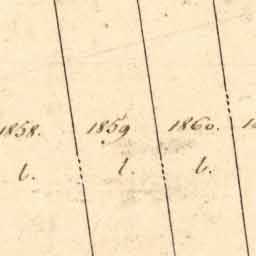 1858. 1859 1860.
b. l. b.